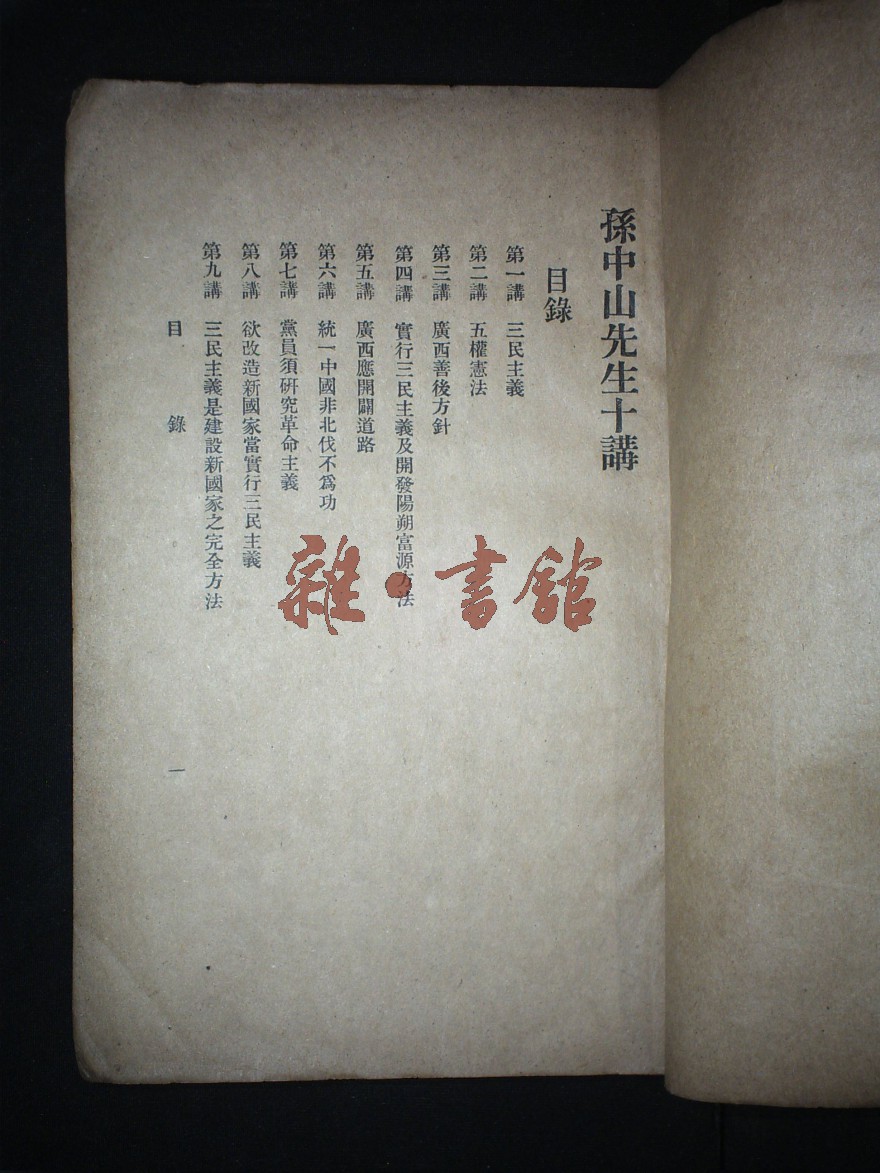 孫中山先生十講
目錄
第一講　三民主義
第二講　五權憲法
第三講　廣西善後方針
第四講　實行三民主義及開發陽朔富源方法
第五講　廣西應開闢道路
第六講　統一中國非北伐不爲功
第七講　黨員須硏究革命主義
第八講　欲改造新國家當實行三民主義
第九講　三民主義是建設新國家之完全方法
目　錄　一
雜·書館